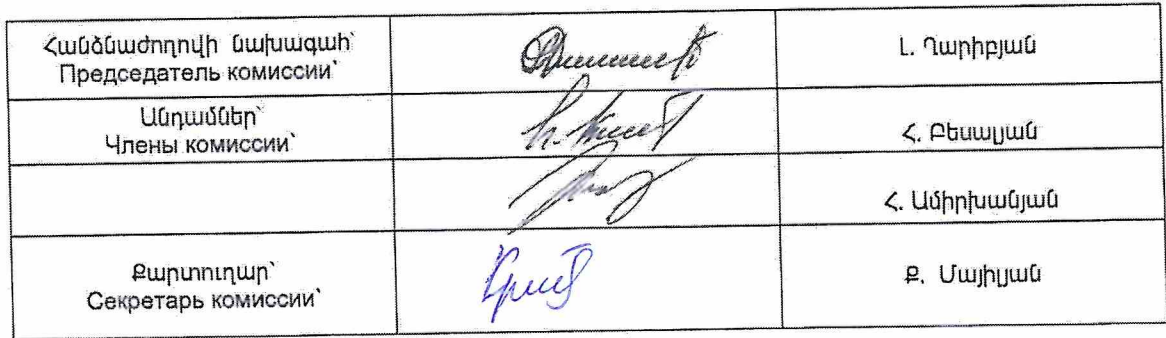 Հանձնաժողովի նախագահ՝
Председатель комиссии՝
Լ. Ղարիբյան
Անդամներ՝
Члены комиссии՝
Հ. Բեսալյան
Հ. Ամիրխանյան
Քարտուղար՝
Секретарь комиссии՝
Ք. Մայիլյան